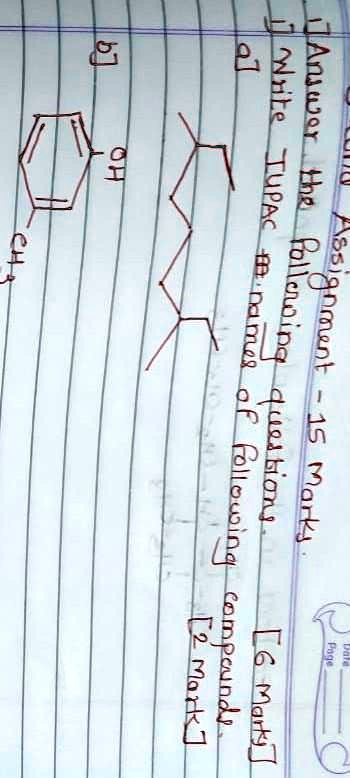 Assignment - 15 Marks.
Date
Page
1] Answer the following questions. [6 Marks]
1] Write IUPAC names of following compounds. [2 Mark]
a]
b]
OH
CH3